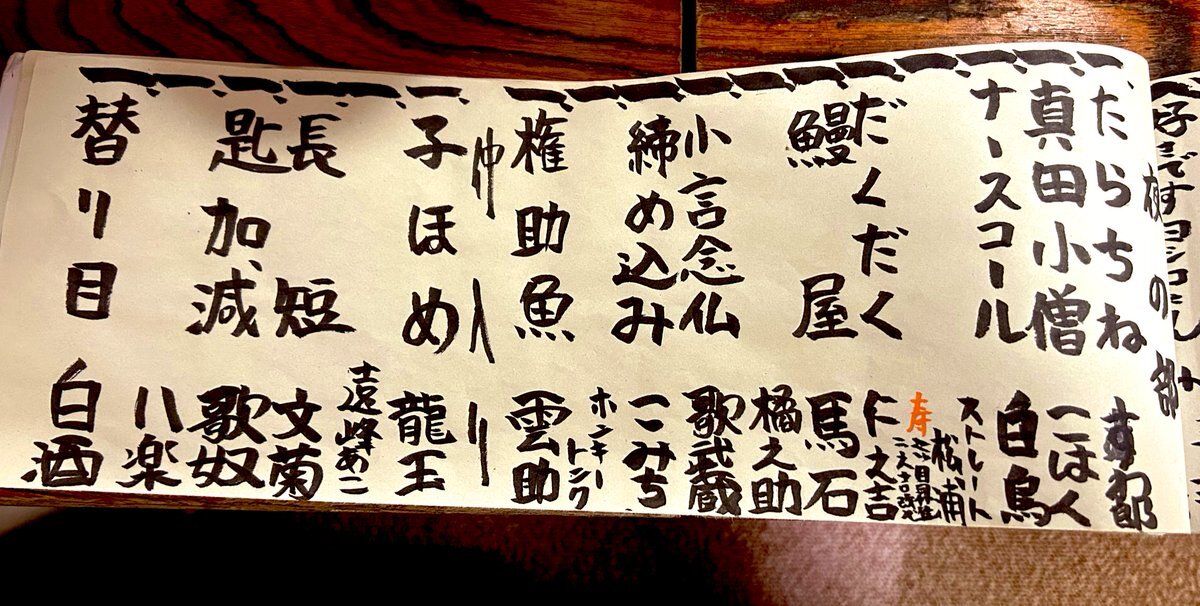 夜の部
たらちね
真田小僧
ナースコール 白鳥
ストレート松浦
寿
だくだく 仁之吉
鰻屋 馬石
橘之助
小言念仏 歌武蔵
締め込み こみち
ホンキートンク
権助魚 雲助
仲入り
子ほめ 龍玉
遠峰あこ
長短 文菊
匙加減 歌奴
八楽
替り目 白酒